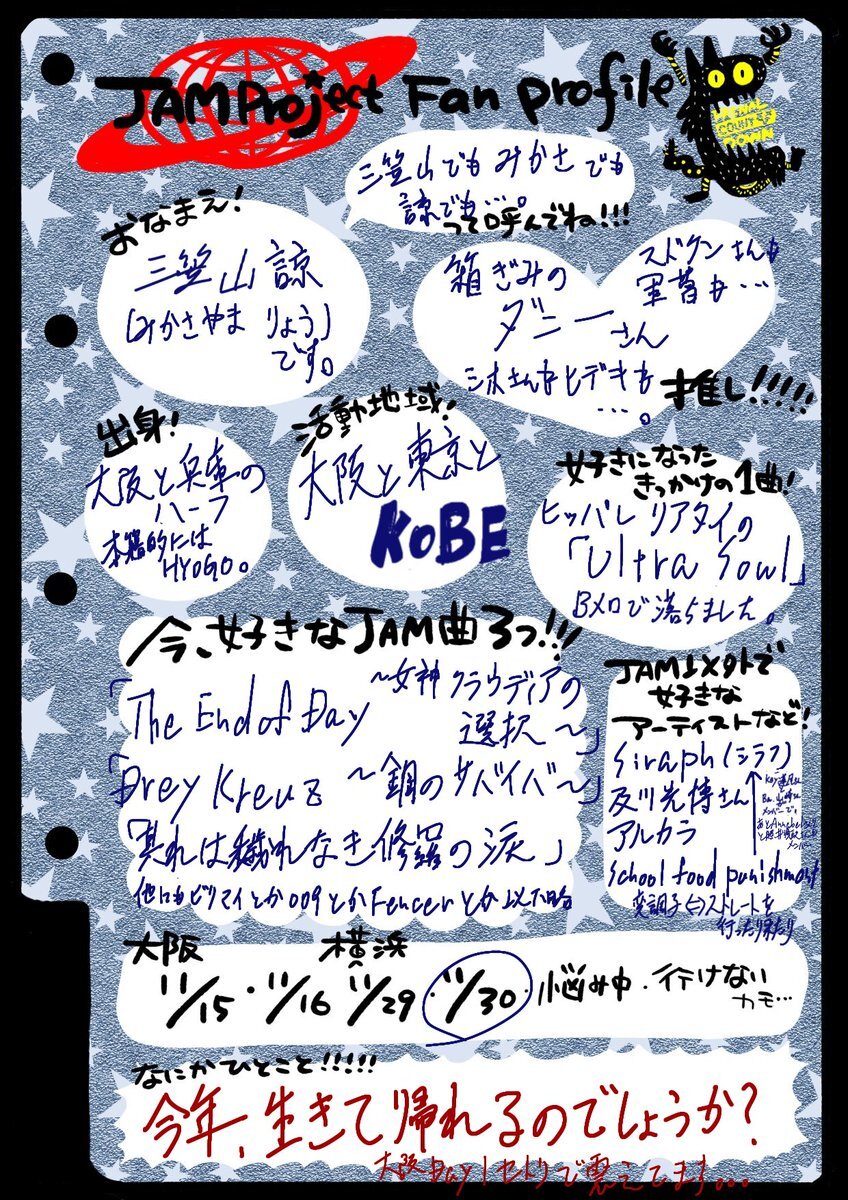 JAM Project Fan profile
おなまえ!
三笠山 諒
(みかさやま りょう)
です。
三笠山でも みかさでも
諒でも…。
って呼んでね!!!
箱ぎみの
ダニーさん
スドケンさんも
軍曹も…
ヒデキも
…。
推し!!!!!
出身!
大阪と兵庫の
ハーフ
本籍的には
HYOGO。
活動地域!
大阪と東京と
KOBE
好きになった
きっかけの1曲!
ヒッパレ リアタイの
「Ultra Soul」
Bメロで落ちました。
今、好きなJAM曲3つ!!!
「The End of Day ~女神クラウディアの
選択~」
「Drey Kreuz ~鋼のサバイバ~」
「其れは穢れなき修羅の涙」
他にもビリマイとか009とかFencerとか以下略
JAM以外で
好きな
アーティストなど!
Siraph(シラフ)
及川光博さん
アルカラ
School food punishment
変調子白ストレートを
行ったり来たり
大阪
11/15・11/16
横浜
11/29・11/30
悩み中・行けない
カモ…
なにかひとこと!!!!!
今年、生きて帰れるのでしょうか?
大阪Day1セトリで震えてます…